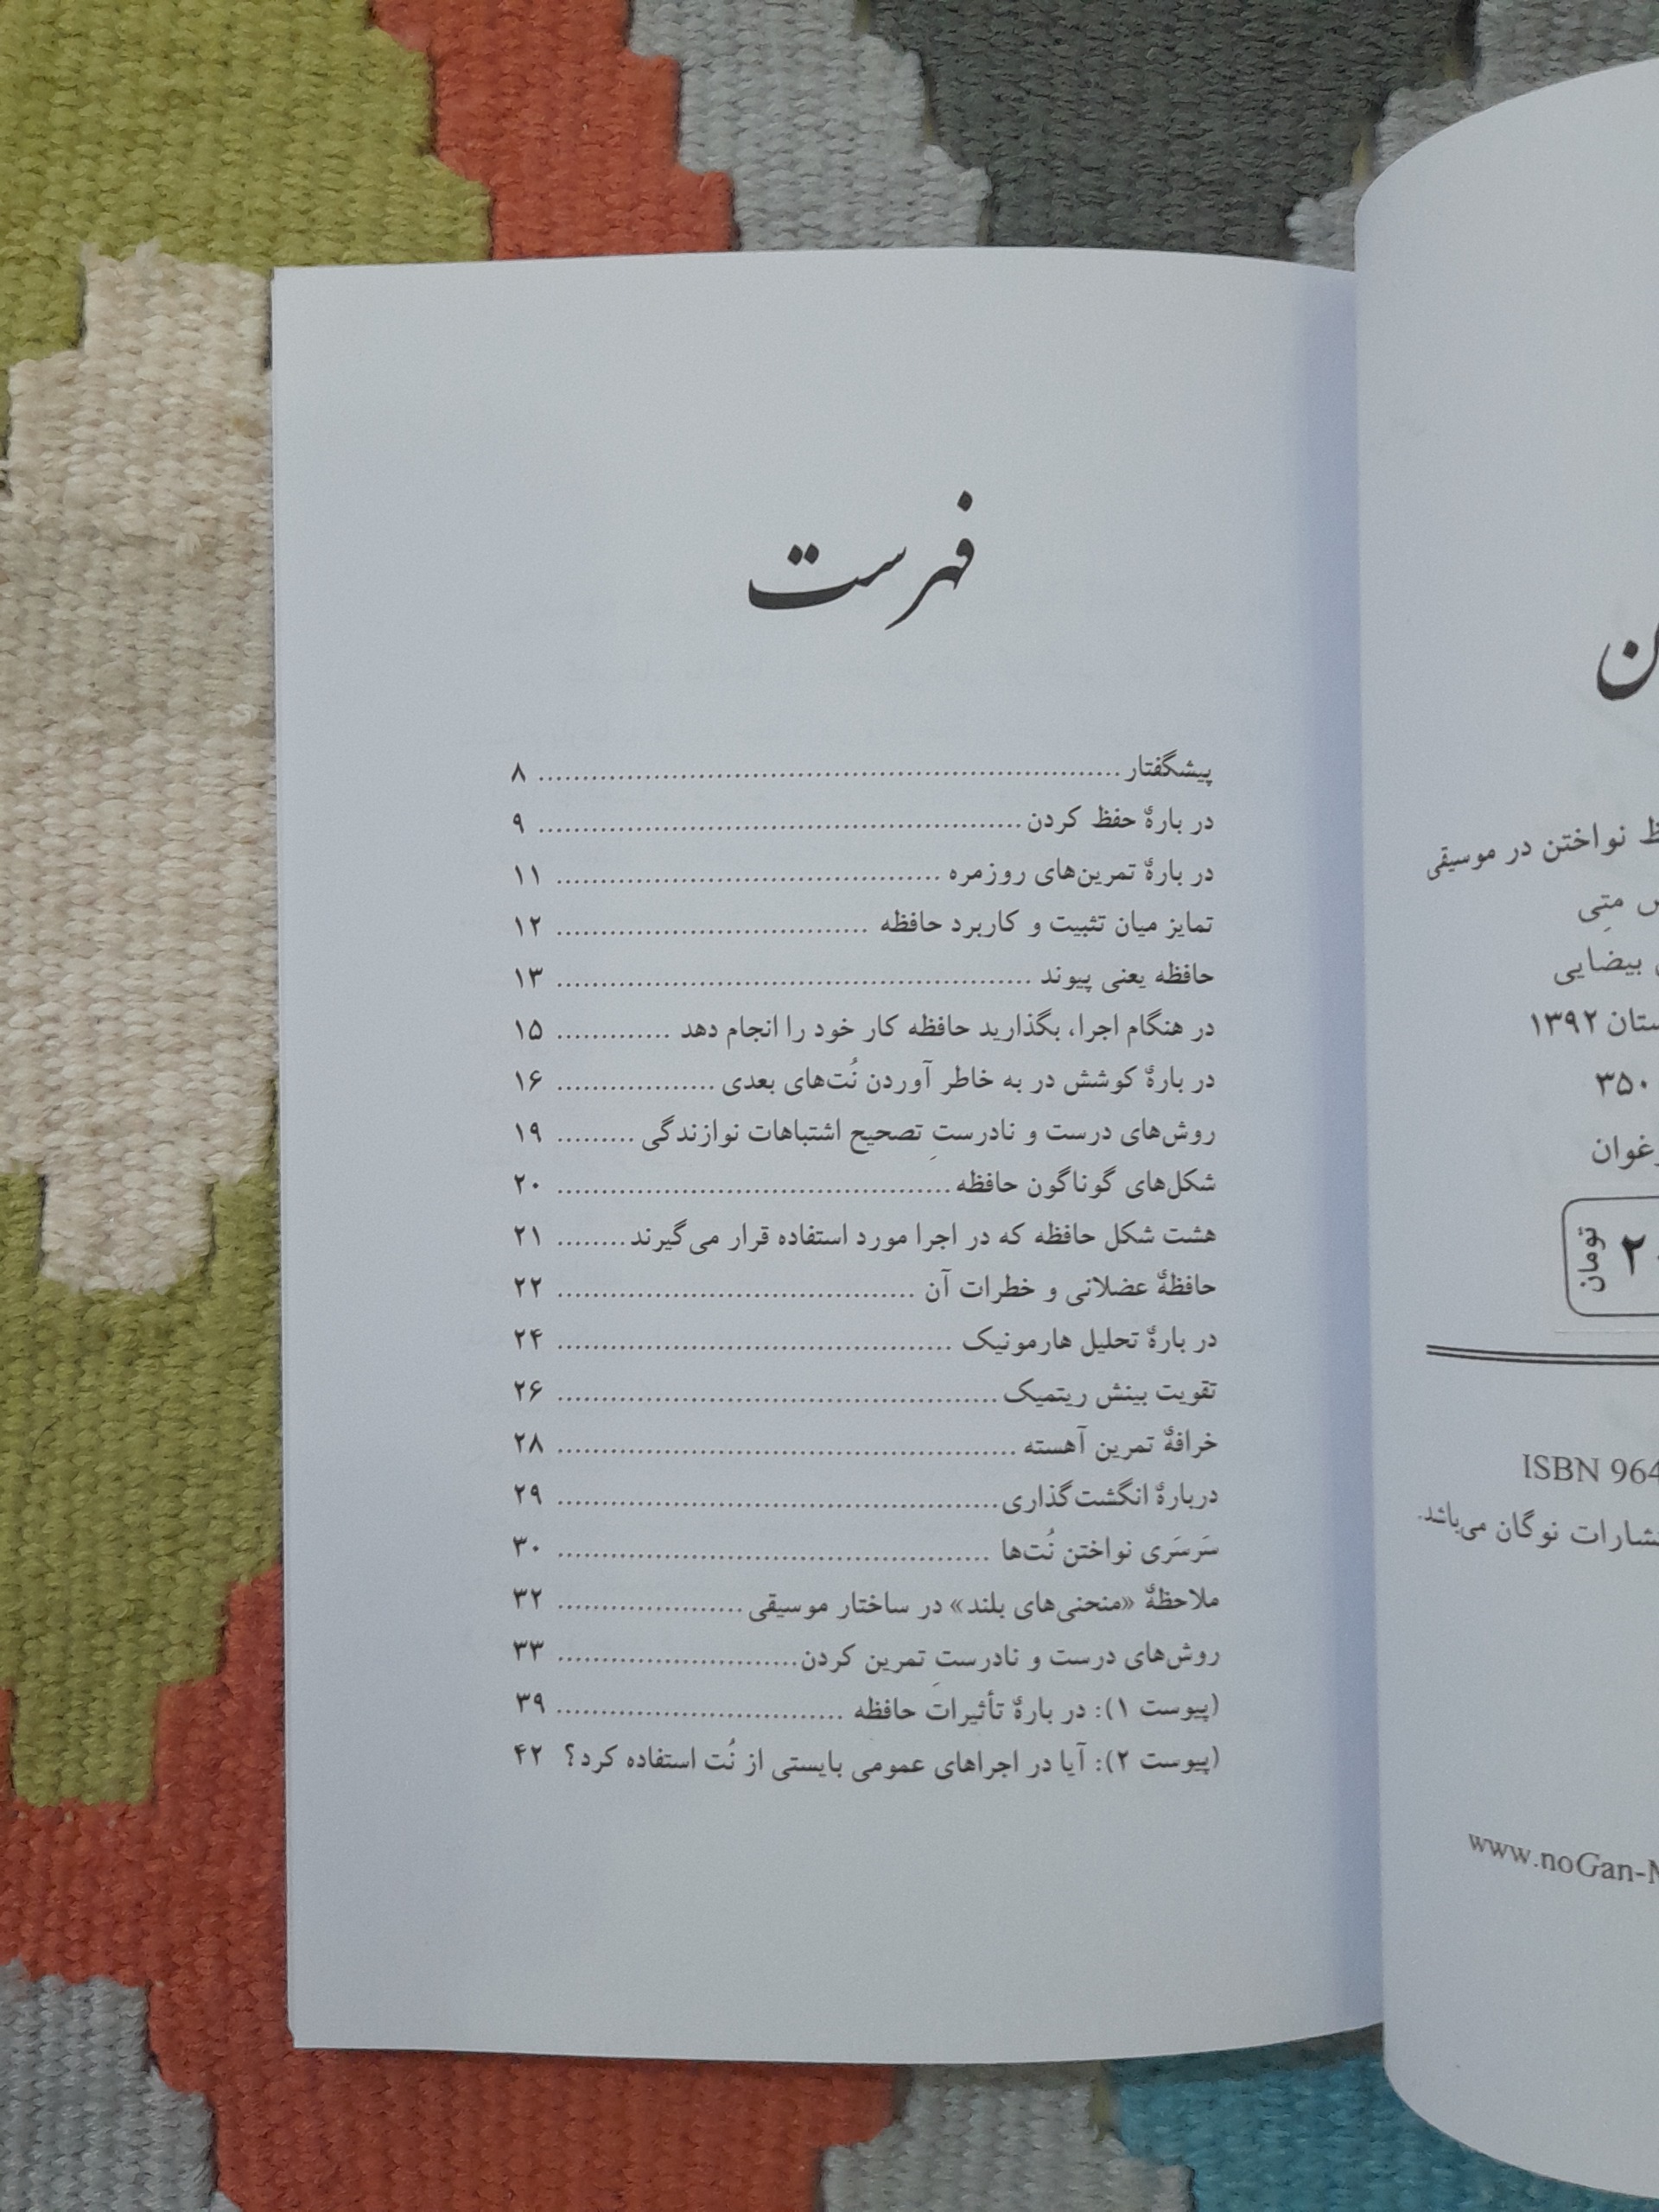 فهرست
پیشگفتار ........ ۸
در بارهٔ حفظ کردن ........ ۹
در بارهٔ تمرین‌های روزمره ........ ۱۱
تمایز میان تثبیت و کاربرد حافظه ........ ۱۲
حافظه یعنی پیوند ........ ۱۳
در هنگام اجرا، بگذارید حافظه کار خود را انجام دهد ........ ۱۵
در بارهٔ کوشش در به خاطر آوردن نُت‌های بعدی ........ ۱۶
روش‌های درست و نادرستِ تصحیح اشتباهات نوازندگی ........ ۱۹
شکل‌های گوناگون حافظه ........ ۲۰
هشت شکل حافظه که در اجرا مورد استفاده قرار می‌گیرند ........ ۲۱
حافظهٔ عضلانی و خطرات آن ........ ۲۲
در بارهٔ تحلیل هارمونیک ........ ۲۴
تقویت بینش ریتمیک ........ ۲۶
خرافهٔ تمرین آهسته ........ ۲۸
دربارهٔ انگشت‌گذاری ........ ۲۹
سَرسَری نواختن نُت‌ها ........ ۳۰
ملاحظهٔ «منحنی‌های بلند» در ساختار موسیقی ........ ۳۲
روش‌های درست و نادرستِ تمرین کردن ........ ۳۳
(پیوست ۱): در بارهٔ تأثیرات حافظه ........ ۳۹
(پیوست ۲): آیا در اجراهای عمومی بایستی از نُت استفاده کرد؟ ۴۲
نواختن در موسیقی
متِی
بیضایی
۱۳۹۲
۳۵۰
تومان
ISBN 964
نوگان می‌باشد.
www.noGan-